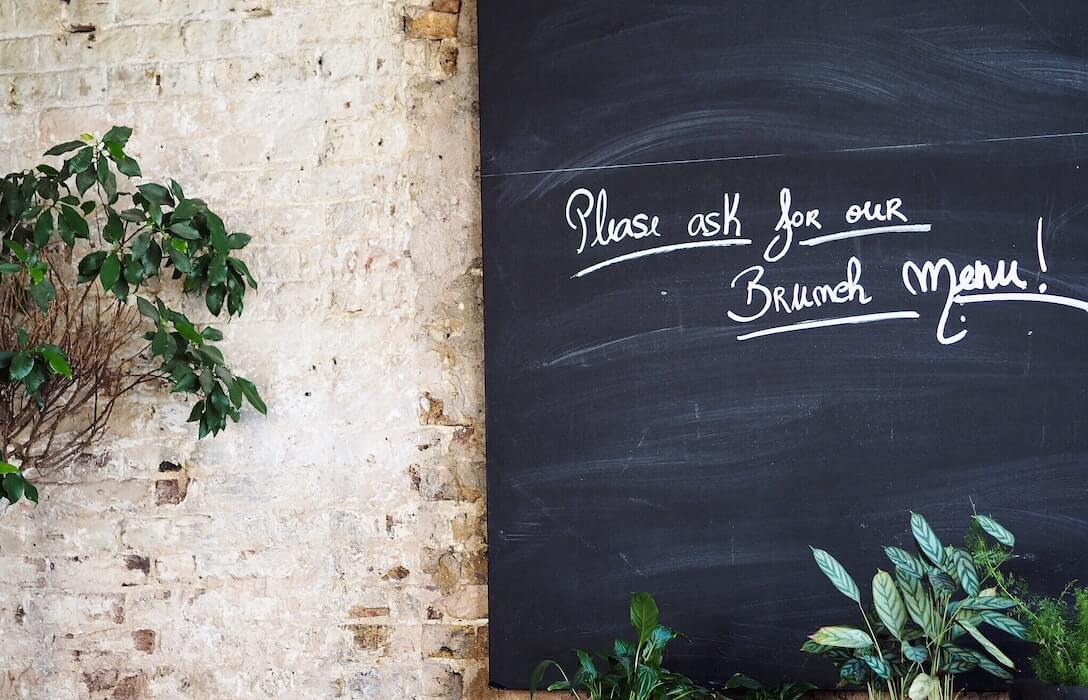 Please ask for our
Brunch Menu!